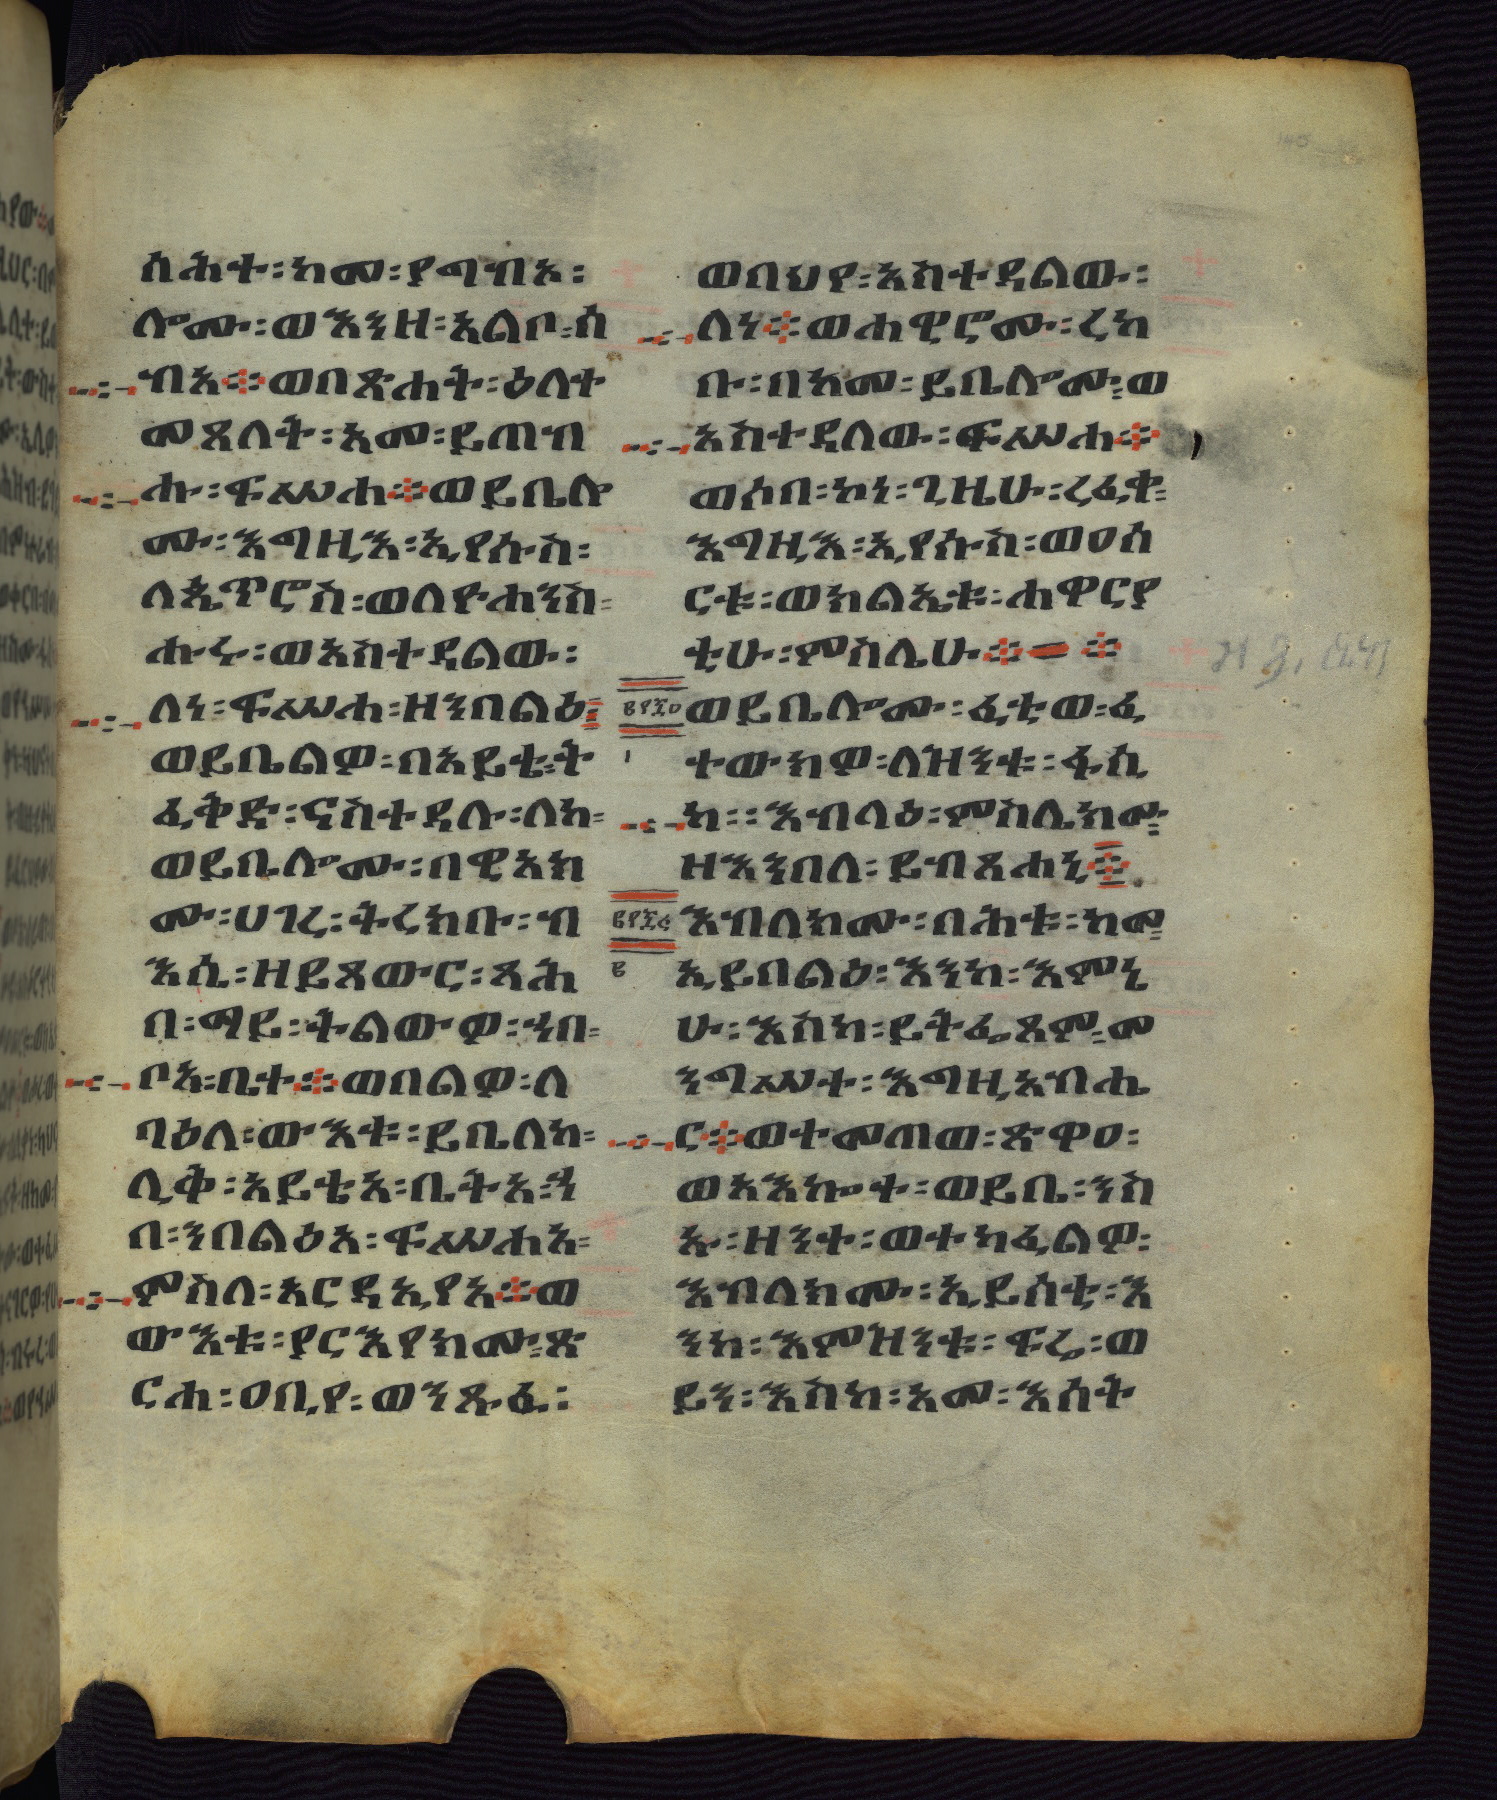 ስሕተ፡ከመ፡ያግብአ፡
ሎሙ፡ወእንዘ፡አልቦ፡ሰ
ብአ፨ወበጽሐት፡ዕለተ
መጸለት፡አመ፡ይጠብ
ሑ፡ፍሥሐ፨ወይቤሎ
ሙ፡እግዚእ፡ኢየሱስ፡
ለጴጥሮስ፡ወለዮሐንስ፡
ሑሩ፡ወአስተዳልው፡
ለነ፡ፍሥሐ፡ዘንበልዕ፡
ወይቤልዎ፡በአይቴ፡ት
ፈቅድ፡ናስተዳሉ፡ለከ፡
ወይቤሎሙ፡በዊአክ
ሙ፡ሀገረ፡ትረክቡ፡ብ
እሲ፡ዘይጸውር፡ጻሕ
በ፡ማይ፡ትልውዎ፡ኀበ፡
ቦአ፡ቤተ፨ወበልዎ፡ለ
ባዕለ፡ውእቱ፡ይቤለከ፡
ሊቅ፡አይቴአ፡ቤትአ፡ኀ
በ፡ንበልዕአ፡ፍሥሐአ፡
ምስለ፡አርዳኢየአ፨ወ
ውእቱ፡ያርእየክሙ፡ጽ
ርሐ፡ዐቢየ፡ወንጹፈ፡
ወበህየ፡አስተዳልው፡
ለነ፨ወሐዊሮሙ፡ረከ
ቡ፡በከመ፡ይቤሎሙ፡ወ
አስተዳለው፡ፍሥሐ፨
ወሶበ፡ኮነ፡ጊዜሁ፡ረፈቀ፡
እግዚእ፡ኢየሱስ፡ወዐሰ
ርቱ፡ወክልኤቱ፡ሐዋርያ
ቲሁ፡ምስሌሁ፨፨
ወይቤሎሙ፡ፈቲወ፡ፈ
ተውክዎ፡ለዝንቱ፡ፋሲ
ካ፡፡እብላዕ፡ምስሌክሙ፡
ዘእንበለ፡ይብጻሐኒ፨
እብለክሙ፡በሕቱ፡ከመ፡
ኢይበልዕ፡እንከ፡እምኔ
ሁ፡እስከ፡ይትፌጸም፡መ
ንግሥተ፡እግዚአብሔ
ር፨ወተመጠወ፡ጽዋዐ፡
ወአእኰተ፡ወይቤ፡ንሥ
ኡ፡ዘንተ፡ወተካፈልዎ፡
እብለክሙ፡ኢይሰቲ፡እ
ንከ፡እምዝንቱ፡ፍሬ፡ወ
ይን፡እስከ፡አመ፡እሰት